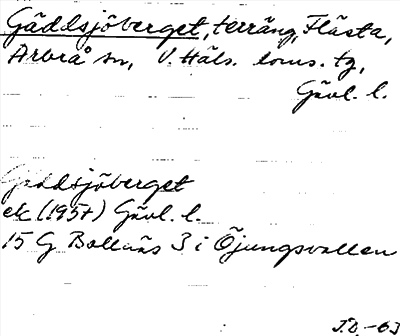 Gäddsjöberget, terräng, Flästa,
Arbrå sn, V. Häls. doms. tg,
Gävl. l.
Gäddsjöberget
ek (1957) Gävl. l.
15 G Bollnäs 3 i Öjungsvallen
J.D. -63